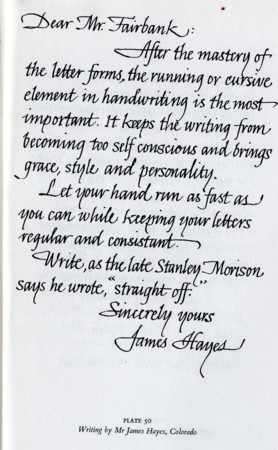 Dear Mr. Fairbank,:
After the mastery of
the letter forms, the running or cursive
element in handwriting is the most
important. It keeps the writing from
becoming too self conscious and brings
grace, style and personality.
Let your hand run as fast as
you can while keeping your letters
regular and consistant.
Write, as the late Stanley Morison
says he wrote, "straight off."
Sincerely yours
James Hayes
PLATE 50
Writing by Mr James Hayes, Colorado